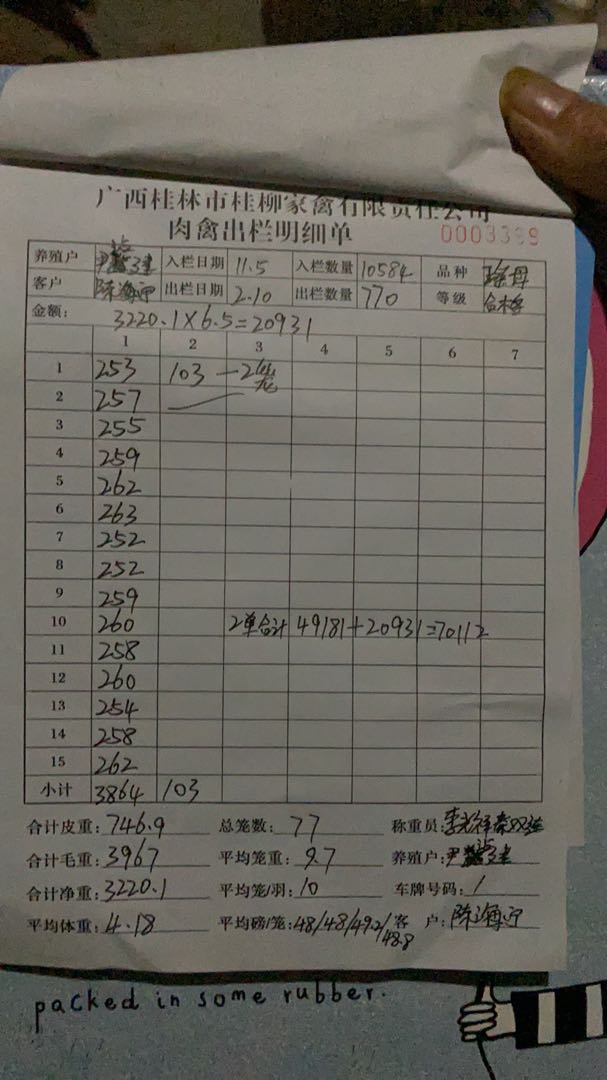 广西桂林市桂柳家禽有限责任公司
肉禽出栏明细单 0003399
养殖户 入栏日期 11.5 入栏数量 10584 品种
客户 陈海宁 出栏日期 2.10 出栏数量 770 等级 合格
金额: 3220.1×6.5=20931
1 2 3 4 5 6 7
1 253 103 — 2笼
2 257
3 255
4 259
5 262
6 263
7 252
8 252
9 259
10 260 2单合计 49181+20931=70112
11 258
12 260
13 254
14 258
15 262
小计 3864 103
合计皮重: 746.9 总笼数: 77 称重员:
合计毛重: 3967 平均笼重: 9.7 养殖户:
合计净重: 3220.1 平均笼/羽: 10 车牌号码: /
平均体重: 4.18 平均磅/笼: 48/48/49.2/48.8 客户: 陈海宁
packed in some rubber.